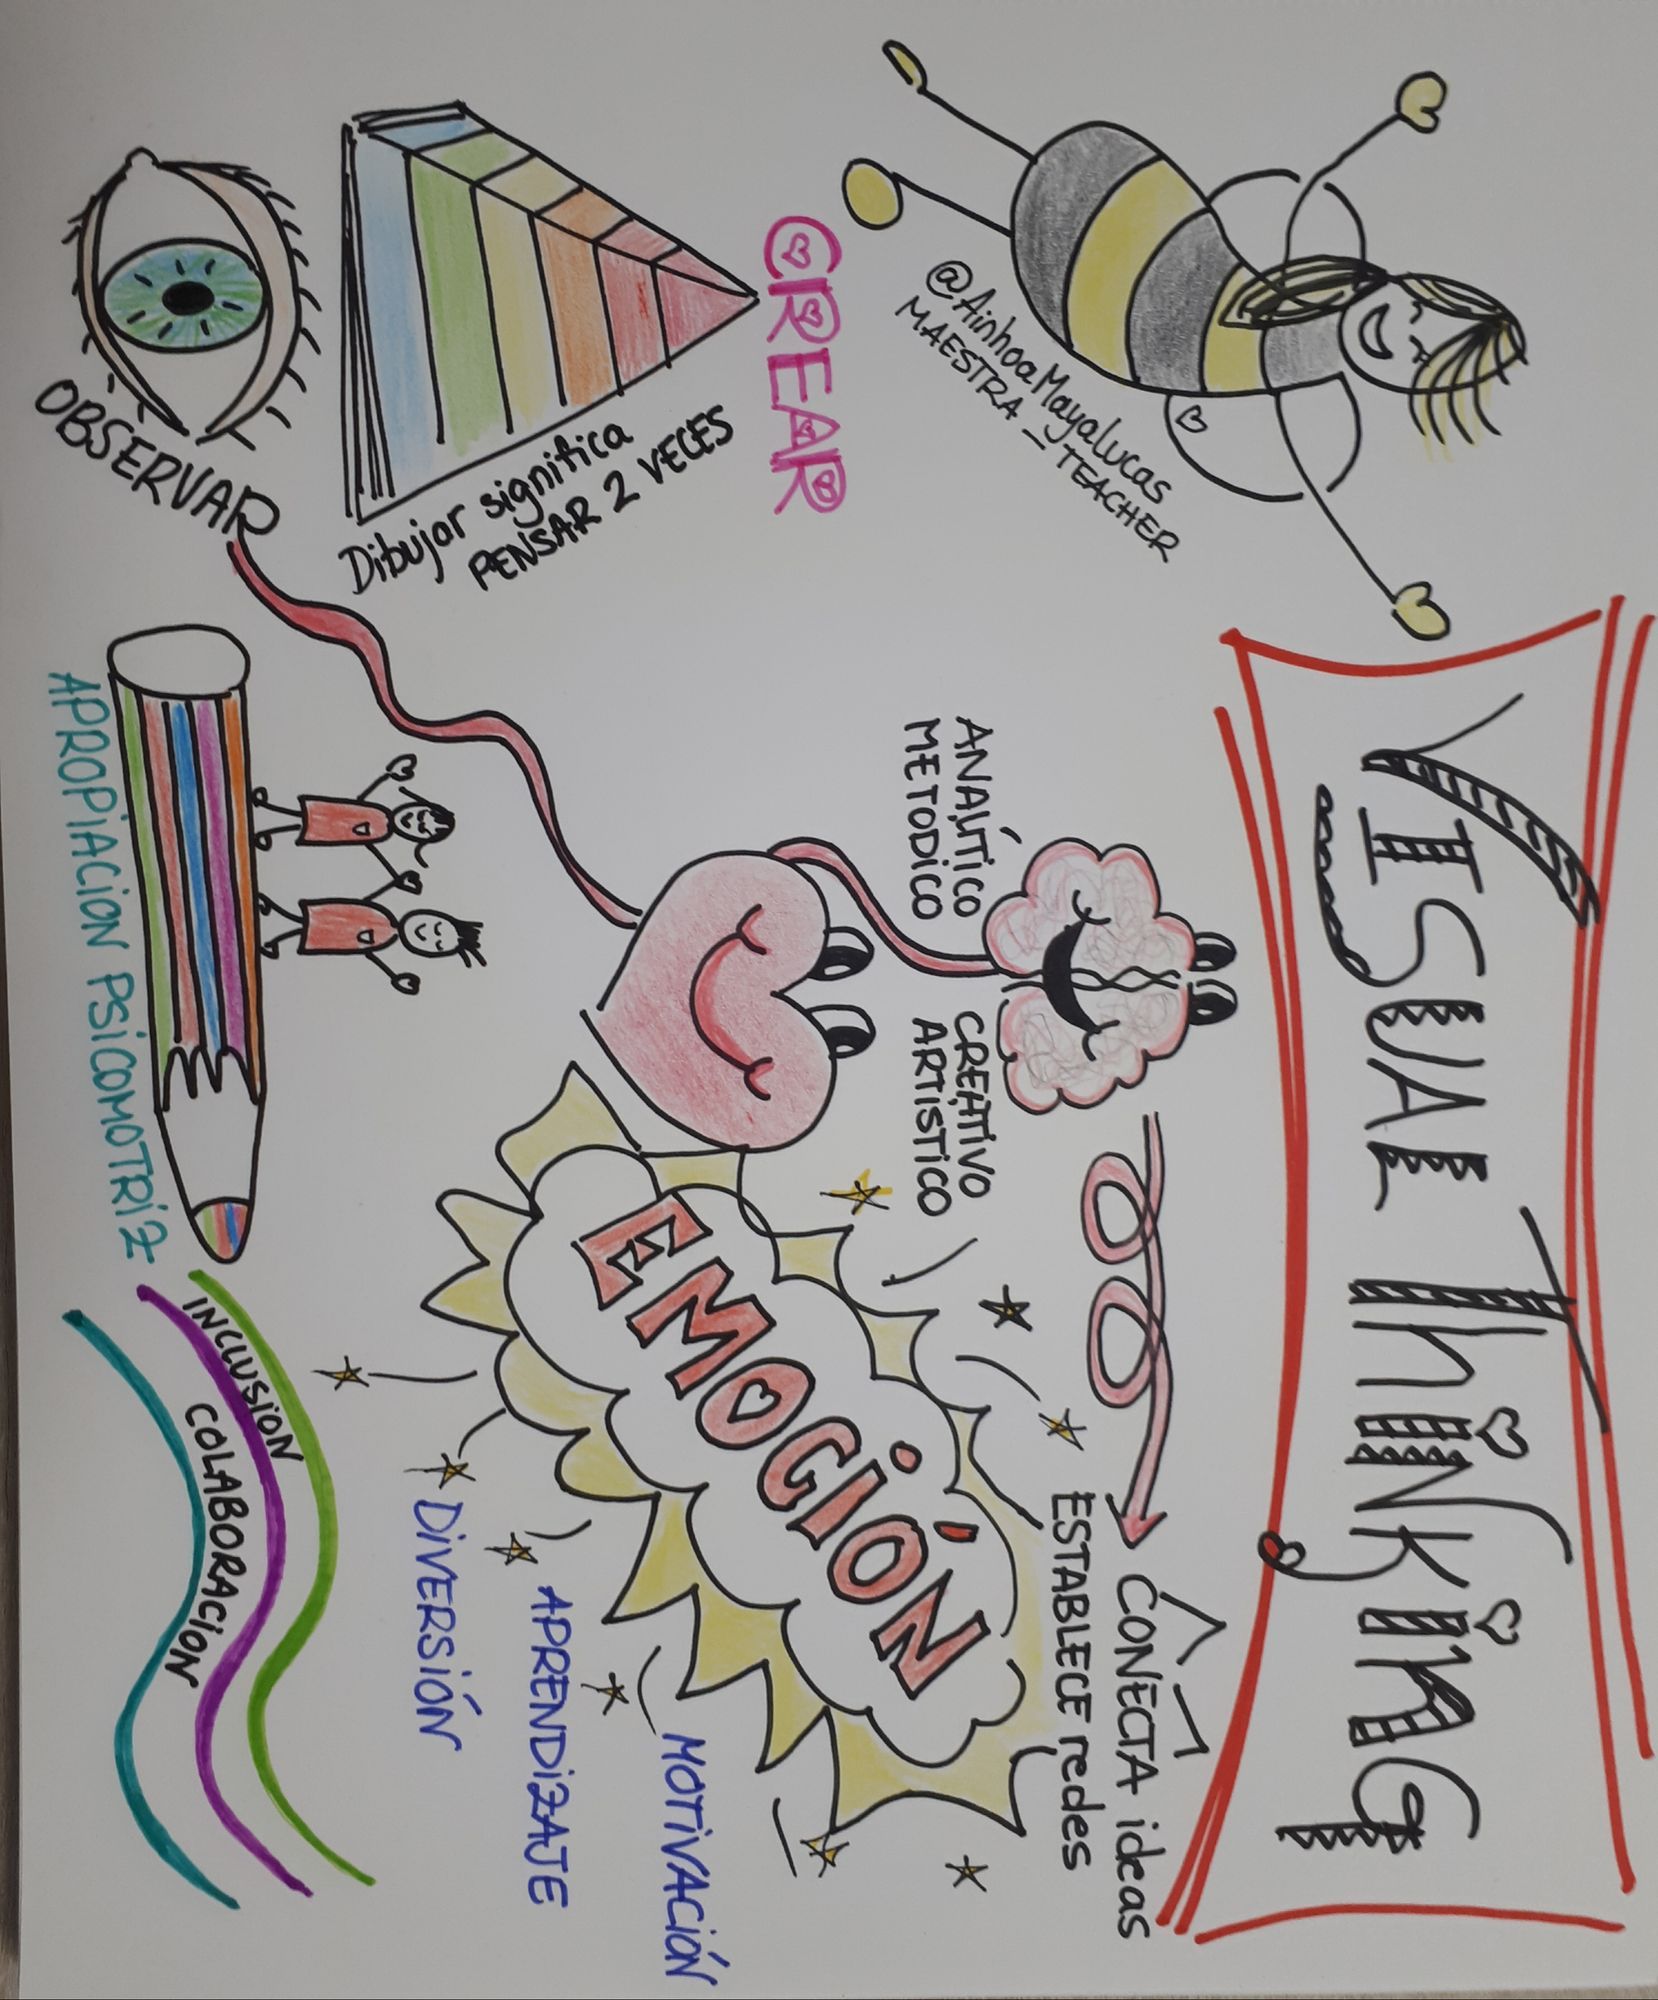 VISUAL ThiNkiNG
@AinhoaMayalucas
MAESTRA_TEACHER
ANALÍTICO
METODiCO
CREATIVO
ARTISTICO
CONECTA ideas
ESTABLECE redes
CREAR
Dibujar significa
PENSAR 2 VECES
EMOCIÓN
MOTIVACIÓN
APRENDiZAJE
DiVERSIÓN
OBSERVAR
APROPIACION PSICOMOTRiZ
INCLUSION
COLABORACION